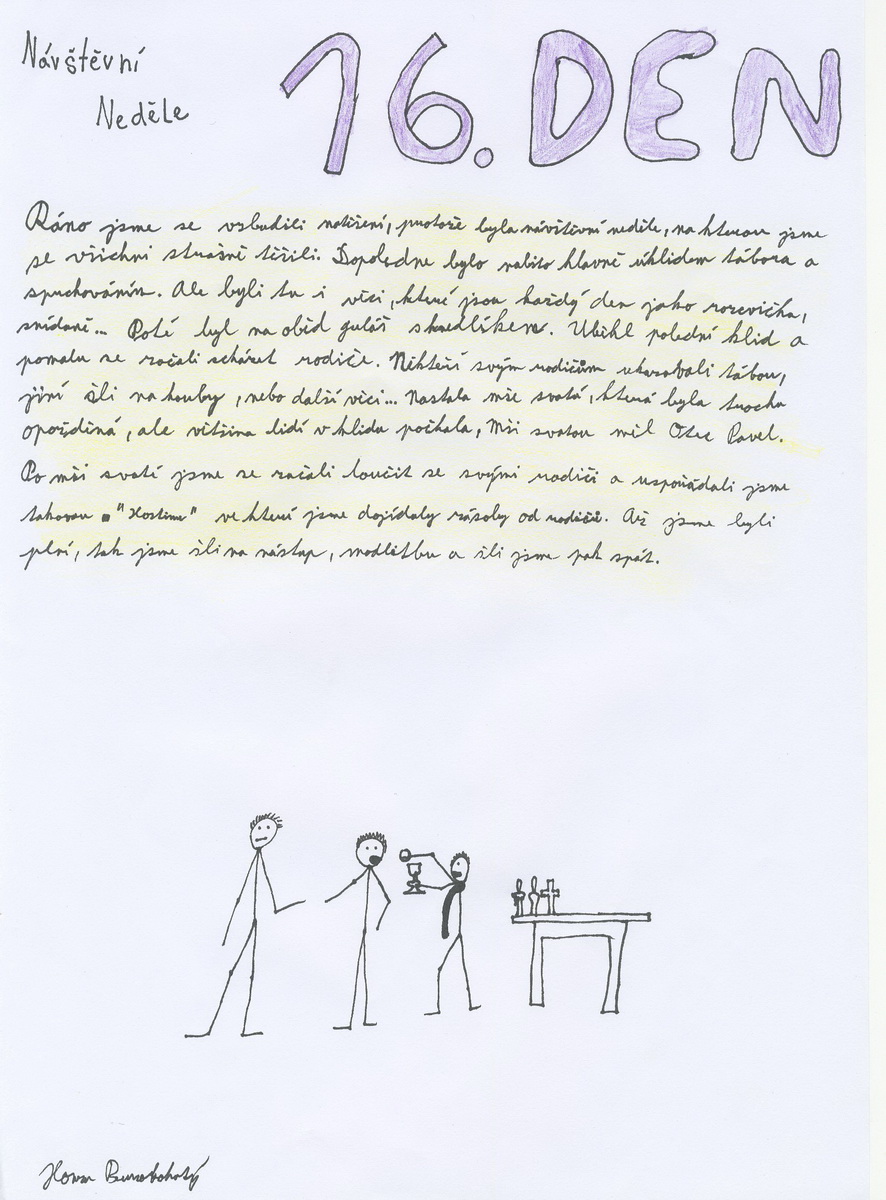 Návštěvní
Neděle
16. DEN
Ráno jsme se vzbudili natěšení, protože byla návštěvní neděle, na kterou jsme
se všichni strašně těšili. Dopoledne bylo nabito hlavně úklidem tábora a
sprchováním. Ale byli tu i věci, které jsou každý den jako rozcvička,
snídaně... Poté byl na oběd guláš s knedlíkem. Uběhl polední klid a
pomalu se začali scházet rodiče. Někteří svým rodičům ukazovali tábor,
jiní šli na houby, nebo další věci... Nastala mše svatá, která byla trochu
opožděná, ale většina lidí v klidu počkala, Mši svatou měl Otec Pavel.
Po mši svaté jsme se začali loučit se svými rodiči a uspořádali jsme
takovou "Hostinu" ve které jsme dojídaly zásoby od rodičů. Až jsme byli
plní, tak jsme šli na nástup, modlitbu a šli jsme pak spát.